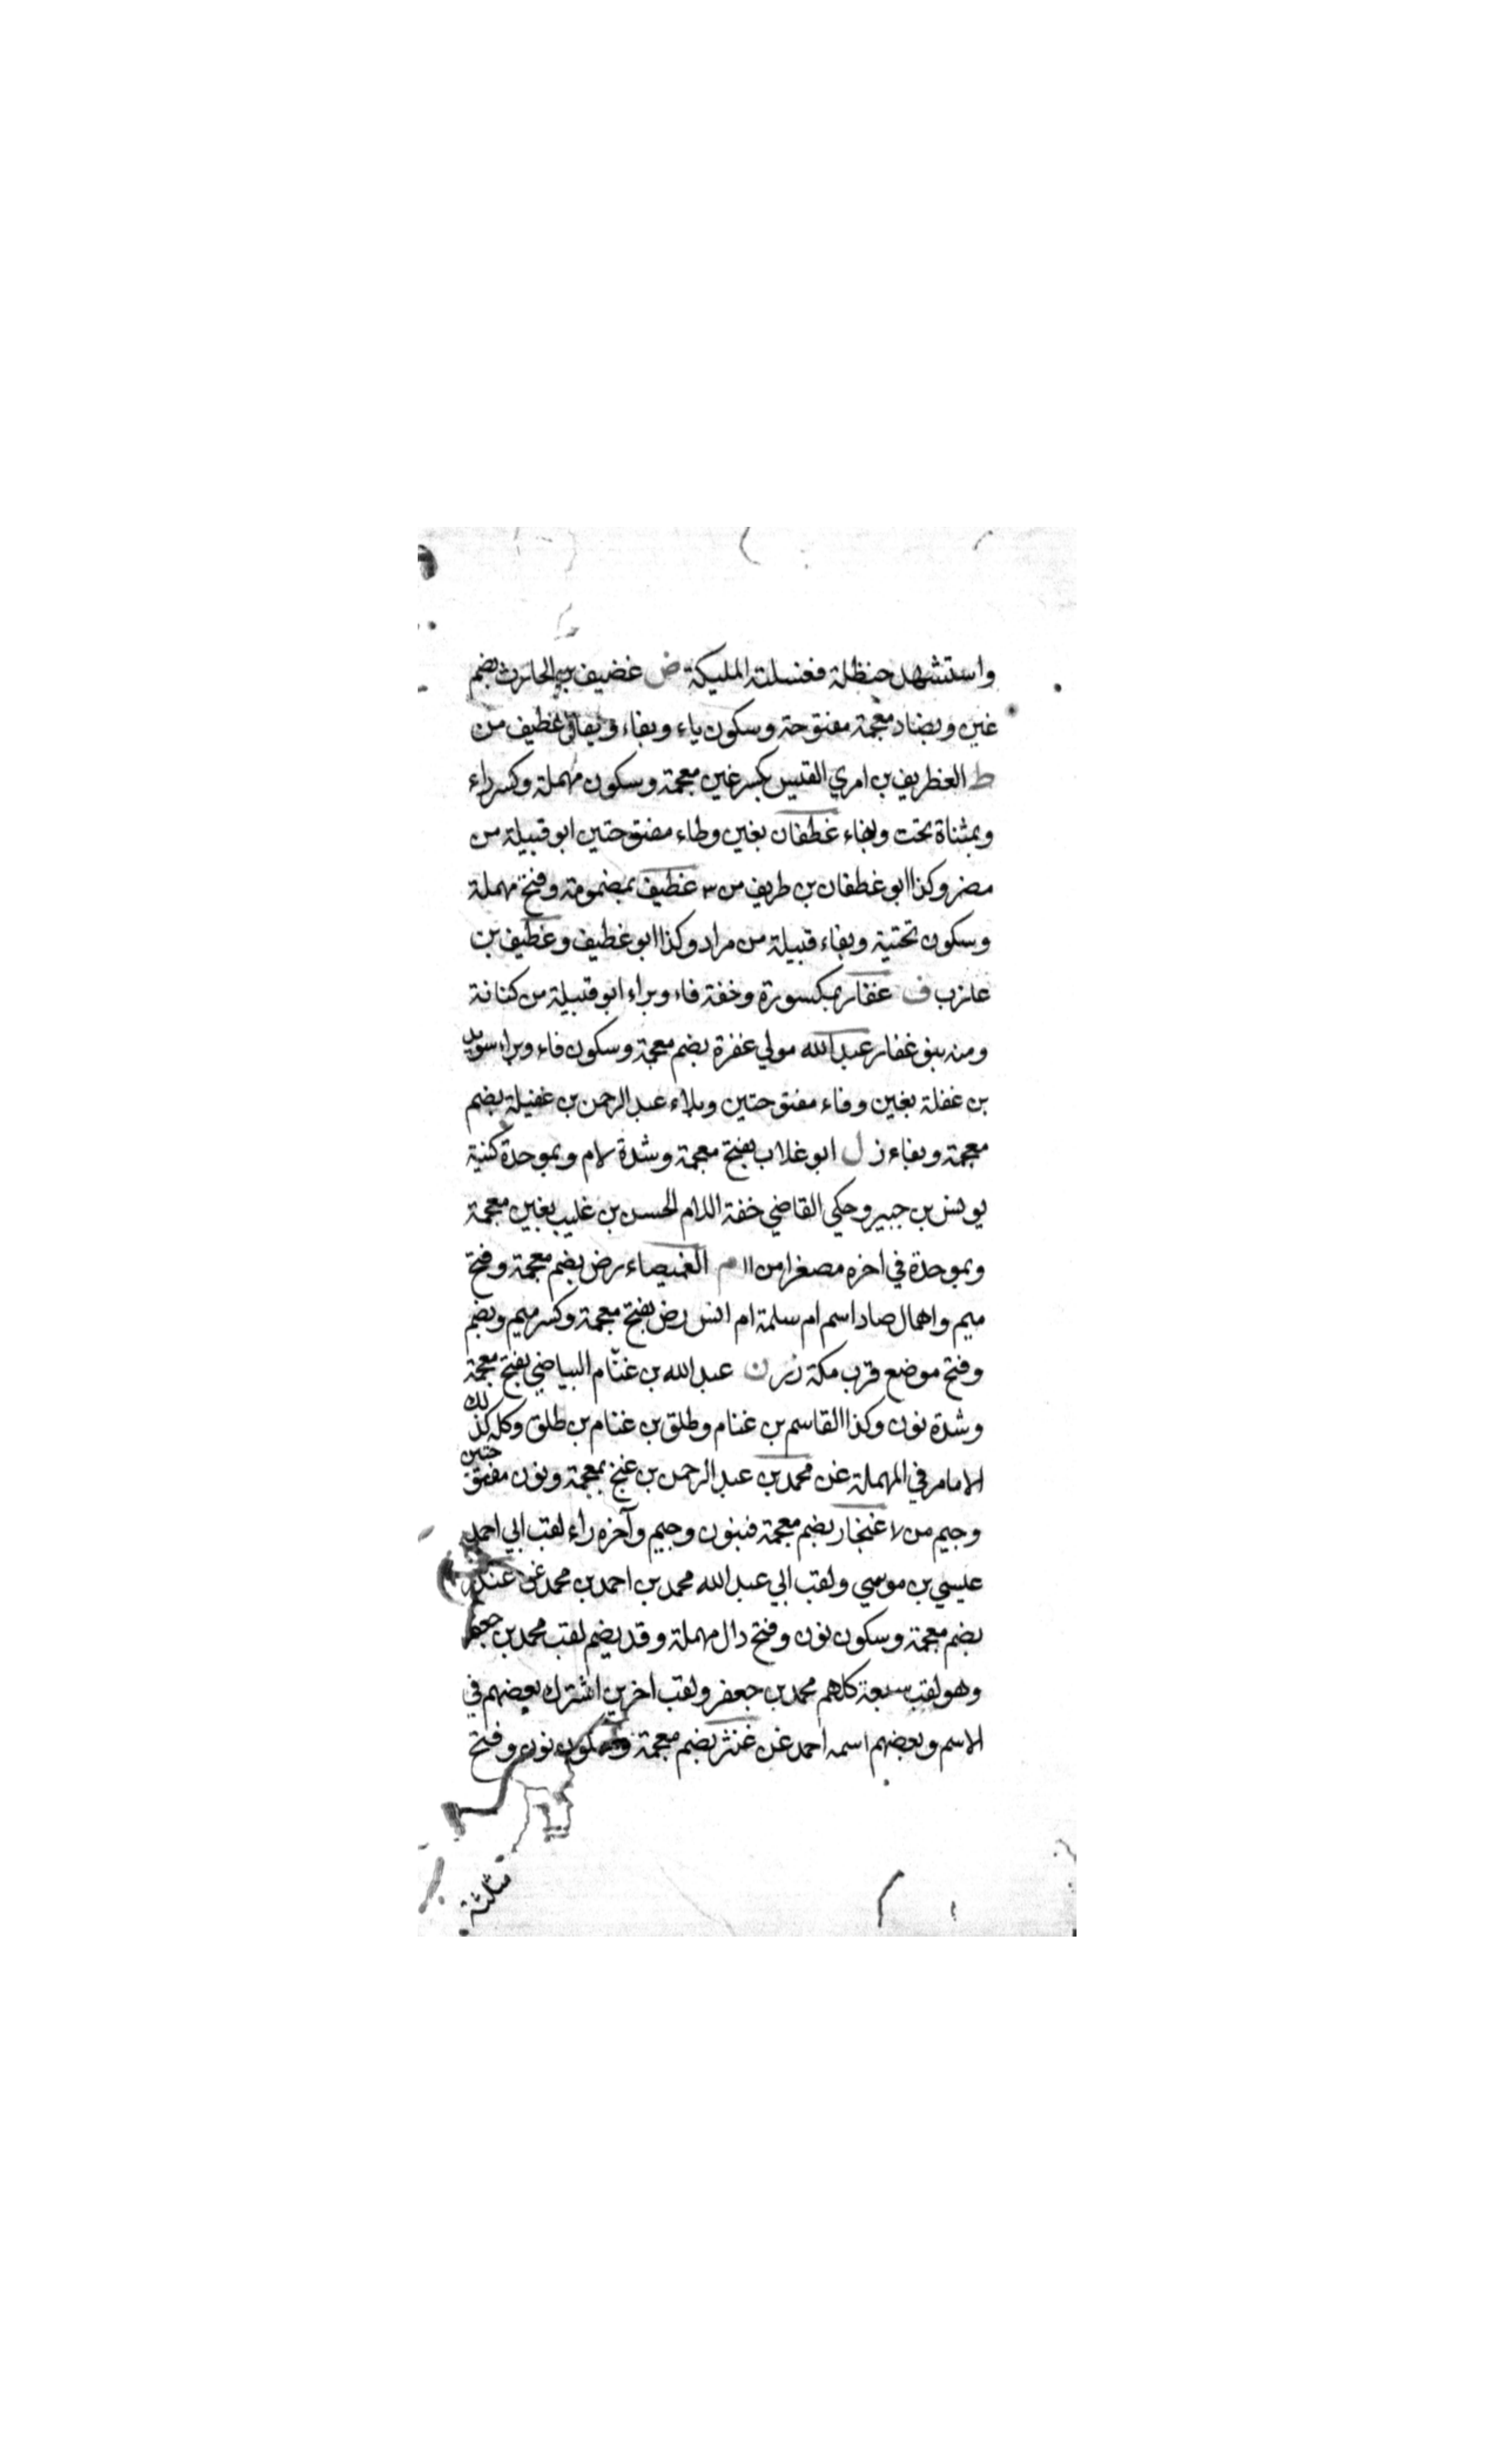 واستشهد حنظلة فغسلته المليكة ض غضيف بن الحارث بضم
غين وبضاد معجمة مفتوحة وسكون ياء وبفاء ويقال غطيف من
ط الغطريف بن امري القيس بكسر غين معجمة وسكون مهملة وكسر راء
وبمثناة تحت وبفاء غطفان بغين وطاء مفتوحتين ابو قبيلة من
مضر وكذا ابو غطفان بن طريف من ٣ غطيف بمضمومة وفتح مهملة
وسكون تحتية وبفاء قبيلة من مراد وكذا ابو غطيف وغطيف بن
عازب ف غفار بمكسورة وخفة فاء وبراء ابو قبيلة من كنانة
ومنه بنو غفار عبد الله مولي غفرة بضم معجمة وسكون فاء وبراء سويد
بن غفلة بغين وفاء مفتوحتين وبلاء عبد الرحمن بن غفيلة بضم
معجمة وبفاء ز ل ابو غلاب بفتح معجمة وشدة لام وبموحدة كنية
يونس بن جبير وحكي القاضي خفة اللام الحسن بن غليب بغين معجمة
وبموحدة في اخره مصغرا من ١١ م الغميصاء رض بضم معجمة وفتح
ميم واهمال صاد اسم ام سلمة ام انس رض بفتح معجمة وكسر ميم وبضم
وفتح موضع قرب مكة ز ن عبد الله بن غنّام البياضي بفتح معجمة
وشدة نون وكذا القاسم بن غنام وطلق بن غنام بن طلق وكله كذلك
الا مامر في المهملة غن محمد بن عبد الرحمن بن غنج بمعجمة ونون مفتوحتين
وجيم من لا غنجار بضم معجمة فنون وجيم وآخره راء لقب ابي احمد
عيسي بن موسي ولقب ابي عبد الله محمد بن احمد بن محمد غن غندر
بضم معجمة وسكون نون وفتح دال مهملة وقد يضم لقب محمد بن جعفر
وهو لقب سبعة كلهم محمد بن جعفر ولقب اخرين اشترك بعضهم في
الاسم وبعضهم اسمه احمد غن غنثر بضم معجمة وسكون نون وفتح
مثلثة